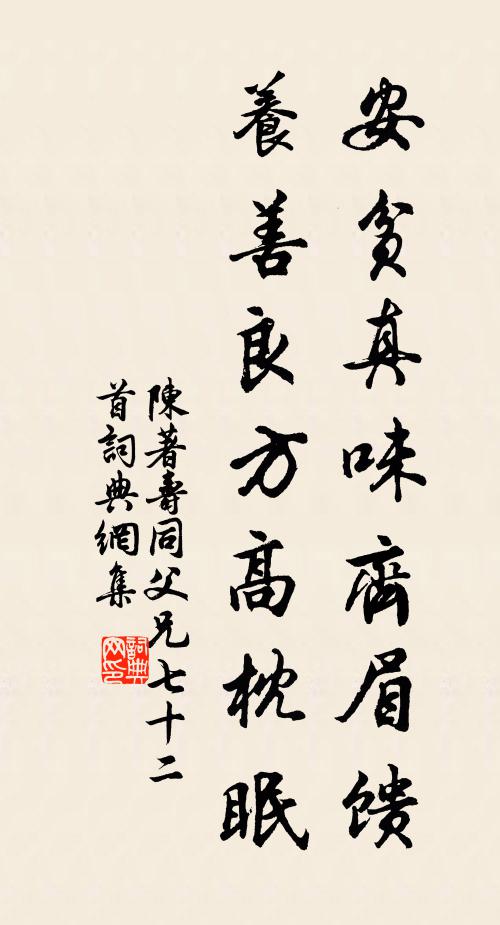 安貧真味齊眉馈
養善良方高枕眠
陳著壽同父兄七十二
首詞典網集
詞典網印